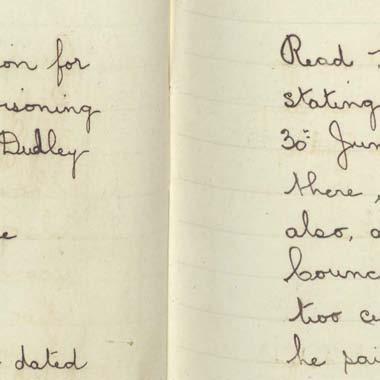 ion for
isoning
Dudley
e
dated
Read
stating
30th Jun
there
also, a
counc
two cu
he pai